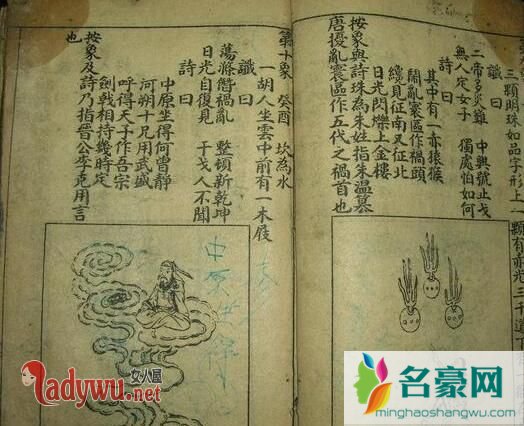 三顆明珠如品字形上一顆有赤光三十道下
二帝多災難 中興號止戈
無人定女子 獨處怕如何
詩曰
其中有一赤猿猴
鬧亂寰區作禍頭
纔見征南又征北
日光閃爍上金樓
按象與詩珠為朱姓指朱溫篡
唐擾亂寰區作五代之禍首也
第十象 癸酉 坎為水
一胡人坐雲中前有一木屐
讖曰
蕩滌僭禍亂 整頓新乾坤
日光自復見 干戈人不聞
詩曰
中原坐得何曾靜
河朔十兄用武盛
呼得天子作吾宗
劍戟相持幾時定
按象及詩乃指晉公李克用言
也
中原
女人屋
ladywu.net
名豪网
minghaoshangwu.com